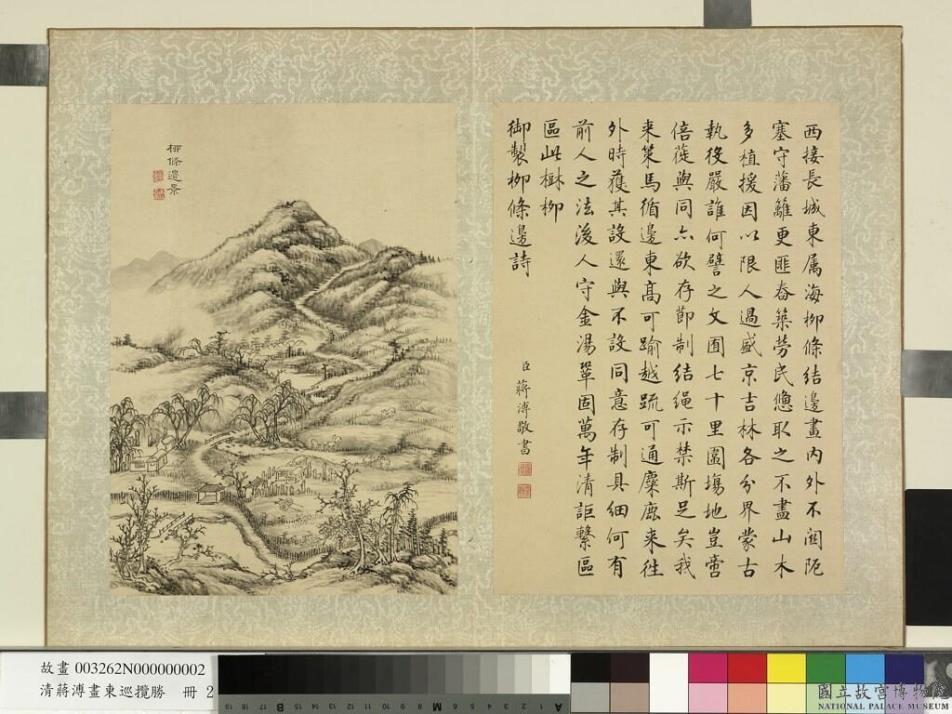 西接長城東属海柳條結邊畫內外不關阨
塞守藩籬更匪畚築勞民憊取之不盡山木
多植援因以限人過盛京吉林各分界蒙古
執役嚴誰何譬之文囿七十里圍場地豈營
倍蓰與同亦欲存節制結繩示禁斯足矣我
來策馬循邊東高可踰越疏可通麋鹿來往
外時獲其設還與不設同意存制具細何有
前人之法後人守金湯鞏固萬年清詎繫區
區此樹柳
御製柳條邊詩
臣蔣溥敬書
柳條邊景
故畫 003262N000000002
清蔣溥畫東巡攬勝 冊 2
國立故宮博物院
NATIONAL PALACE MUSEUM